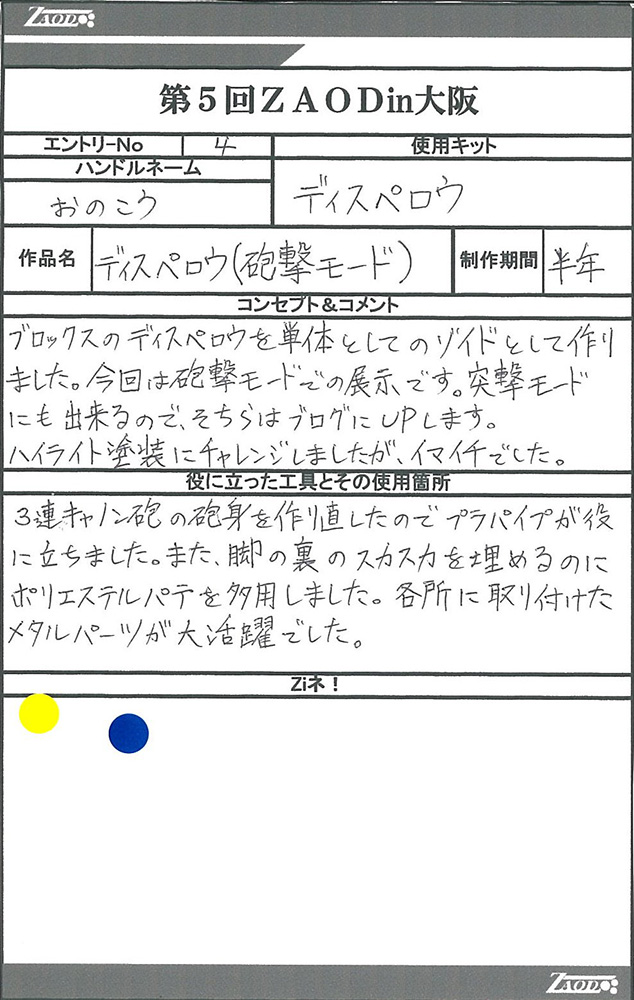 ZAOD
第5回ZAODin大阪
エントリ-No 4 使用キット
ハンドルネーム
おのこう ディスペロウ
作品名 ディスペロウ(砲撃モード) 制作期間 半年
コンセプト&コメント
ブロックスのディスペロウを単体としてのゾイドとして作り
ました。今回は砲撃モードでの展示です。突撃モード
にも出来るので、そちらはブログにUPします。
ハイライト塗装にチャレンジしましたが、イマイチでした。
役に立った工具とその使用箇所
3連キャノン砲の砲身を作り直したのでプラパイプが役
に立ちました。また、脚の裏のスカスカを埋めるのに
ポリエステルパテを多用しました。各所に取り付けた
メタルパーツが大活躍でした。
Ziネ!
ZAOD